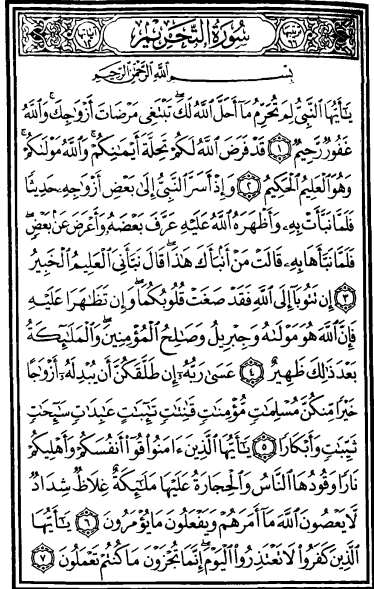 سُورَةُ التَّحْرِيمِ
بِسْمِ اللَّهِ الرَّحْمَٰنِ الرَّحِيمِ
يَٰٓأَيُّهَا النَّبِيُّ لِمَ تُحَرِّمُ مَآ أَحَلَّ اللَّهُ لَكَ ۖ تَبْتَغِى مَرْضَاتَ أَزْوَٰجِكَ ۚ وَاللَّهُ
غَفُورٌ رَّحِيمٌ ١ قَدْ فَرَضَ اللَّهُ لَكُمْ تَحِلَّةَ أَيْمَٰنِكُمْ ۚ وَاللَّهُ مَوْلَىٰكُمْ ۖ
وَهُوَ الْعَلِيمُ الْحَكِيمُ ٢ وَإِذْ أَسَرَّ النَّبِيُّ إِلَىٰ بَعْضِ أَزْوَٰجِهِۦ حَدِيثًا
فَلَمَّا نَبَّأَتْ بِهِۦ وَأَظْهَرَهُ اللَّهُ عَلَيْهِ عَرَّفَ بَعْضَهُۥ وَأَعْرَضَ عَنۢ بَعْضٍ ۖ
فَلَمَّا نَبَّأَهَا بِهِۦ قَالَتْ مَنْ أَنۢبَأَكَ هَٰذَا ۖ قَالَ نَبَّأَنِىَ الْعَلِيمُ الْخَبِيرُ
٣ إِن تَتُوبَآ إِلَى اللَّهِ فَقَدْ صَغَتْ قُلُوبُكُمَا ۖ وَإِن تَظَٰهَرَا عَلَيْهِ
فَإِنَّ اللَّهَ هُوَ مَوْلَىٰهُ وَجِبْرِيلُ وَصَٰلِحُ الْمُؤْمِنِينَ ۖ وَالْمَلَٰٓئِكَةُ
بَعْدَ ذَٰلِكَ ظَهِيرٌ ٤ عَسَىٰ رَبُّهُۥٓ إِن طَلَّقَكُنَّ أَن يُبْدِلَهُۥٓ أَزْوَٰجًا
خَيْرًا مِّنكُنَّ مُسْلِمَٰتٍ مُّؤْمِنَٰتٍ قَٰنِتَٰتٍ تَٰٓئِبَٰتٍ عَٰبِدَٰتٍ سَٰٓئِحَٰتٍ
ثَيِّبَٰتٍ وَأَبْكَارًا ٥ يَٰٓأَيُّهَا الَّذِينَ ءَامَنُوا۟ قُوٓا۟ أَنفُسَكُمْ وَأَهْلِيكُمْ
نَارًا وَقُودُهَا النَّاسُ وَالْحِجَارَةُ عَلَيْهَا مَلَٰٓئِكَةٌ غِلَاظٌ شِدَادٌ
لَّا يَعْصُونَ اللَّهَ مَآ أَمَرَهُمْ وَيَفْعَلُونَ مَا يُؤْمَرُونَ ٦ يَٰٓأَيُّهَا
الَّذِينَ كَفَرُوا۟ لَا تَعْتَذِرُوا۟ الْيَوْمَ ۖ إِنَّمَا تُجْزَوْنَ مَا كُنتُمْ تَعْمَلُونَ ٧